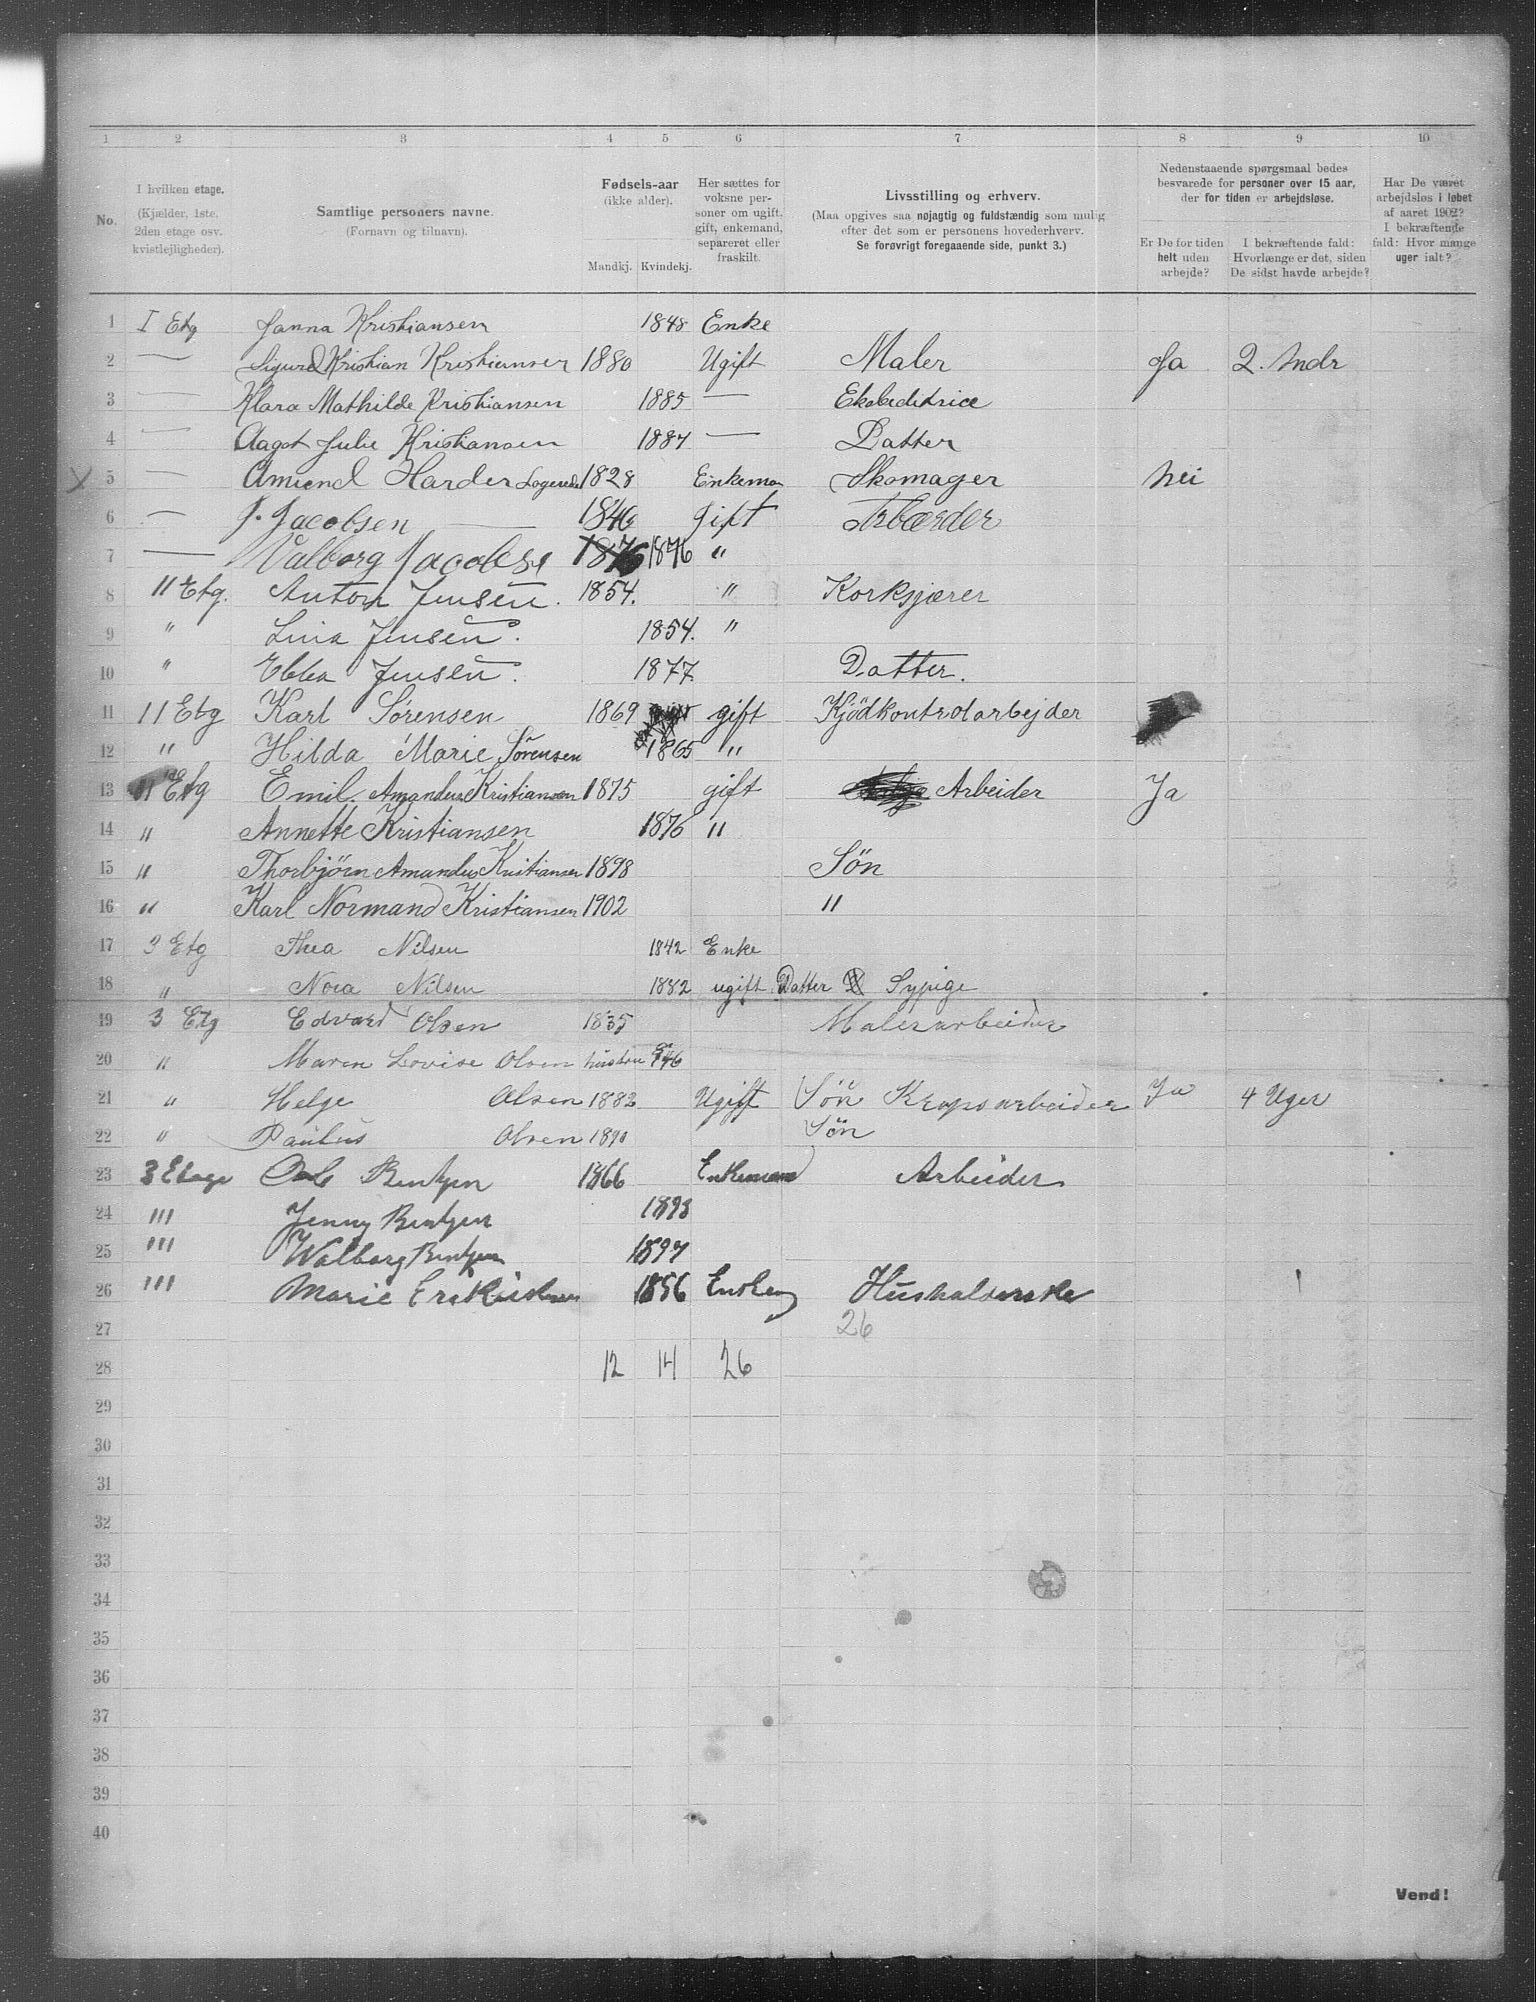 1 2 3 4 5 6 7 8 9 10
No.
I hvilken etage.
(Kjælder, 1ste.
2den etage osv.
kvistlejligheder).
Samtlige personers navne.
(Fornavn og tilnavn).
Fødsels-aar
(ikke alder).
Mandkj. Kvindekj.
Her sættes for
voksne per-
soner om ugift.
gift, enkemand,
separeret eller
fraskilt.
Livsstilling og erhverv.
(Maa opgives saa nøjagtig og fuldstændig som mulig
efter det som er personens hovederhverv.
Se forøvrigt foregaaende side, punkt 3.)
Nedenstaaende spørgsmaal bedes
besvarede for personer over 15 aar,
der for tiden er arbejdsløse.
Er De for tiden
helt uden
arbejde?
I bekræftende fald:
Hvorlænge er det, siden
De sidst havde arbejde?
Har De været
arbejdsløs i løbet
af aaret 1902?
I bekræftende
fald: Hvor mange
uger ialt?
1 I Etg Janna Kristiansen 1848 Enke
2 — Sigurd Kristian Kristiansen 1880 Ugift Maler Ja 2. Mdr
3 — Klara Mathilde Kristiansen 1885 — Ekspeditrice
4 — Aagot Julie Kristiansen 1887 — Datter
5 — Amund Harder Logerende 1828 Enkeman Skomager Nei
6 — J. Jacobsen — 1846 Gift Arbærder
7 — Valborg Jacobsen 1876 1876 "
8 11 Etg. Anton Jensen. 1854. " Korkskjærer
9 " Lina Jensen. 1854. "
10 " Ebba Jensen. 1877. Datter.
11 11 Etg Karl Sørensen 1869 gift Kjödkontrolarbejder
12 " Hilda Marie Sørensen 1865 "
13 11 Etg Emil Amandus Kristiansen 1875 gift Arbeider Ja
14 " Annette Kristiansen 1876 "
15 " Thorbjörn Amandus Kristiansen 1898 Sön
16 " Karl Normand Kristiansen 1902 "
17 3 Etg Thea Nilsen 1842 Enke
18 " Nora Nilsen 1882 ugift Datter Sypige
19 3 Etg Edvard Olsen 1835 Malerarbeider
20 " Maren Lovise Olsen hustru 46
21 " Helge Olsen 1882 Ugift Sön Arbeider Ja 4 Uger
22 " Paulus Olsen 1890 Sön
23 3 Etage Bentzen 1866 Enkemand Arbeider
24 ''' Jenny Bentzen 1893
25 ''' Walborg Bentzen 1897
26 ''' Marie Eriksen 1856 Husholderske
27 26
28 12 14 26
29
30
31
32
33
34
35
36
37
38
39
40
Vend!